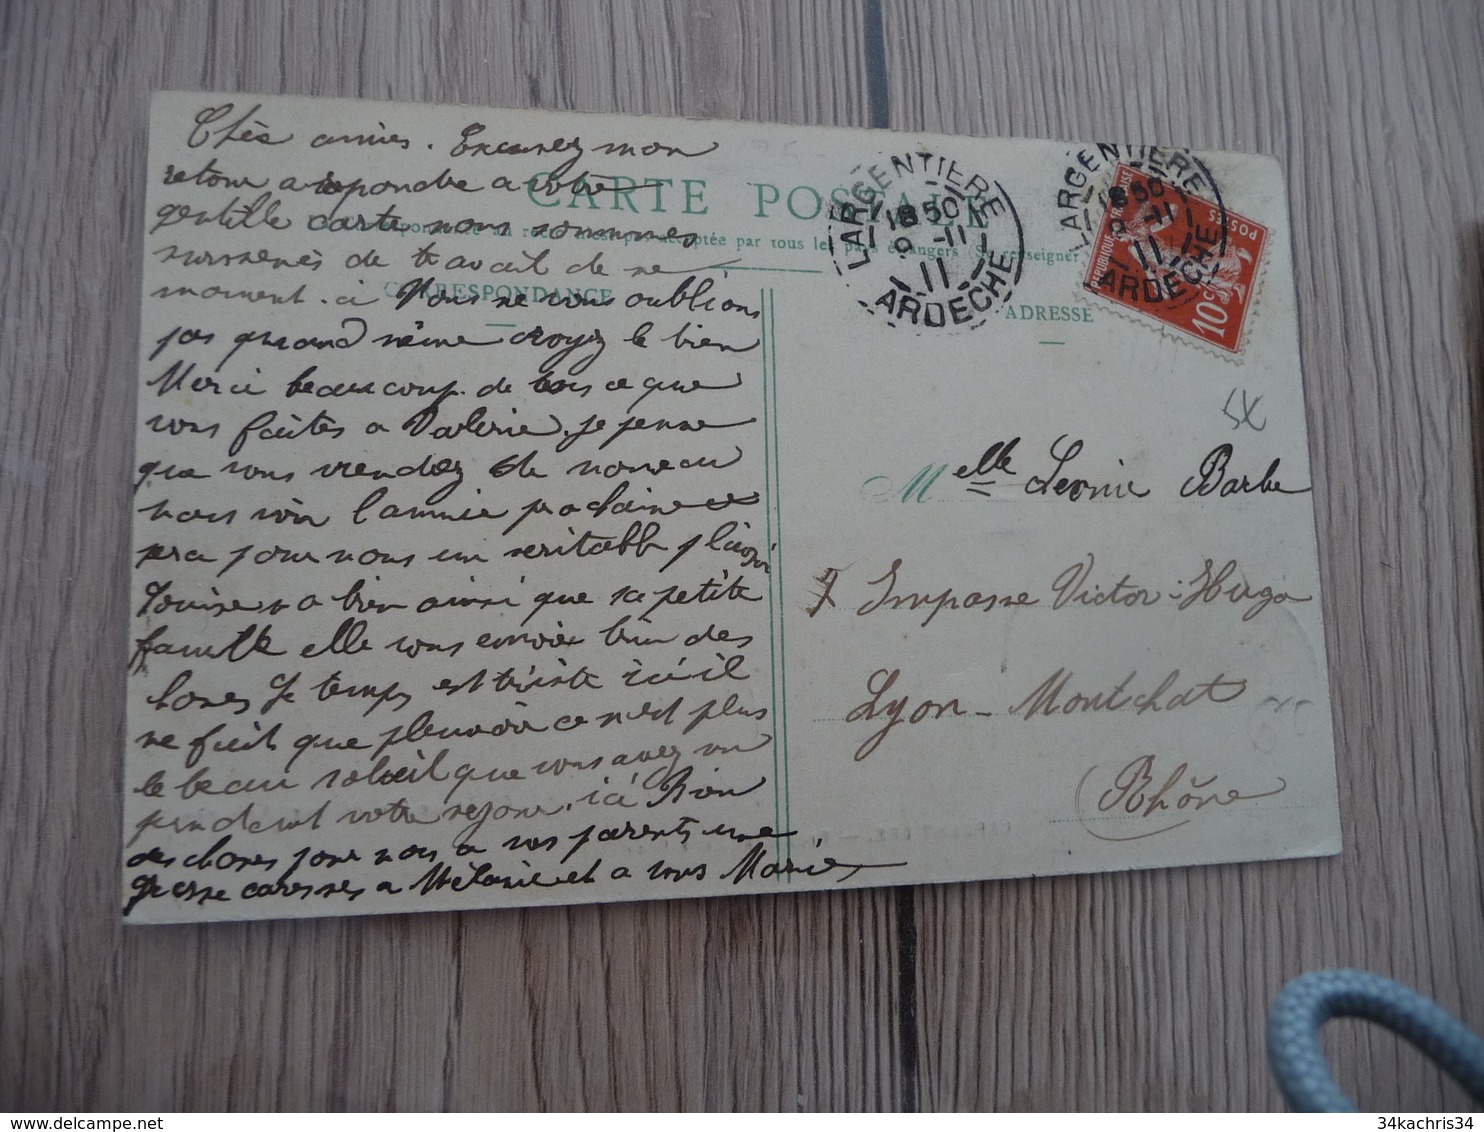 Chès amies. Excusez mon
retour a repondre a votre
gentille carte nous sommes
surmenés de travail de se
moment. ci Nous ne vous oublions
pas quand même croyez le bien
Merci beaucoup de tous ce que
vous faites a Valerie. je pense
que vous viendez de nouveau
nous voir l'année prochaine ce
sera pour nous un veritable plaisir
Louise va bien ainsi que sa petite
famille elle vous envoie bien des
choses Le temps est triste ici il
ne fait que pleuvoir ce n'est plus
le beau soleil que vous avez vu
pendant votre sejour. ici Bien
des choses pour nous a vos parents une
grosse caresses a Mélanie et a vous Marie
CARTE POSTALE
CORRESPONDANCE
ADRESSE
LARGENTIERE
18 50
9 -11
11
ARDECHE
LARGENTIERE
18 50
9 -11
11
ARDECHE
RÉPUBLIQUE FRANÇAISE
POSTES
10c
5X
Melle Leonie Barbe
7 Impasse Victor-Hugo
Lyon - Montchat
(Rhône)
34kachris34